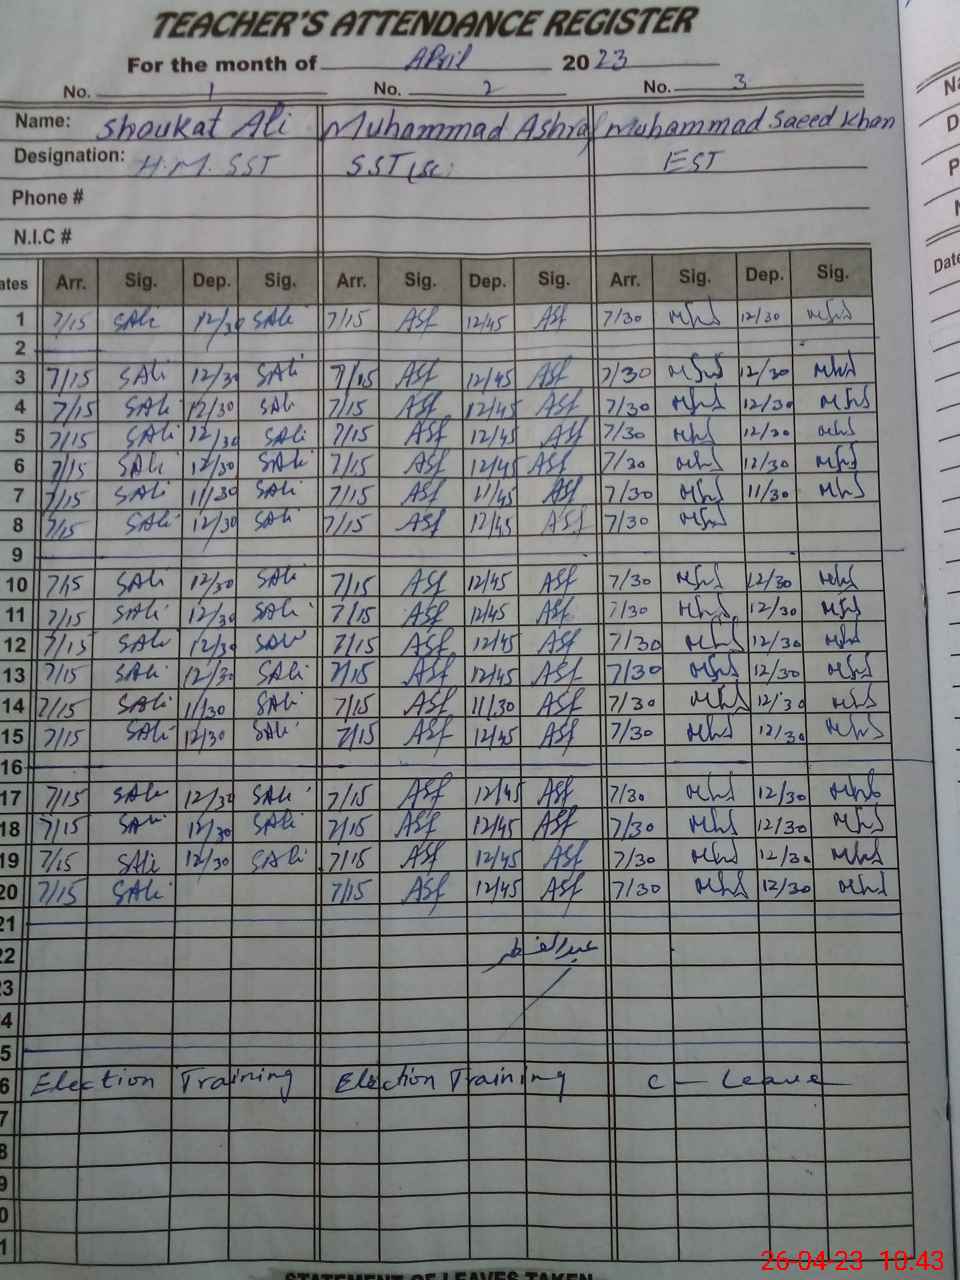 TEACHER'S ATTENDANCE REGISTER
For the month of April 2023
No. 1 No. 2 No. 3
Name: Shoukat Ali Muhammad Ashraf Muhammad Saeed Khan
Designation: H.M. SST SST (Sc) EST
Phone #
N.I.C #
ates Arr. Sig. Dep. Sig. Arr. Sig. Dep. Sig. Arr. Sig. Dep. Sig.
1 7/15 SAli 12/30 SAli 7/15 Asf 12/45 Asf 7/30 12/30
2
3 7/15 SAli 12/30 SAli 7/15 Asf 12/45 Asf 7/30 12/30
4 7/15 SAli 12/30 SAli 7/15 Asf 12/45 Asf 7/30 12/30
5 7/15 SAli 12/30 SAli 7/15 Asf 12/45 Asf 7/30 12/30
6 7/15 SAli 12/30 SAli 7/15 Asf 12/45 Asf 7/30 12/30
7 7/15 SAli 11/30 SAli 7/15 Asf 11/45 Asf 7/30 11/30
8 7/15 SAli 12/30 SAli 7/15 Asf 12/45 Asf 7/30
9
10 7/15 SAli 12/30 SAli 7/15 Asf 12/45 Asf 7/30 12/30
11 7/15 SAli 12/30 SAli 7/15 Asf 12/45 Asf 7/30 12/30
12 7/15 SAli 12/30 SAli 7/15 Asf 12/45 Asf 7/30 12/30
13 7/15 SAli 12/30 SAli 7/15 Asf 12/45 Asf 7/30 12/30
14 7/15 SAli 11/30 SAli 7/15 Asf 11/30 Asf 7/30 12/30
15 7/15 SAli 12/30 SAli 7/15 Asf 12/45 Asf 7/30 12/30
16
17 7/15 SAli 12/30 SAli 7/15 Asf 12/45 Asf 7/30 12/30
18 7/15 SAli 12/30 SAli 7/15 Asf 12/45 Asf 7/30 12/30
19 7/15 SAli 12/30 SAli 7/15 Asf 12/45 Asf 7/30 12/30
20 7/15 SAli 7/15 Asf 12/45 Asf 7/30 12/30
21
22 عید الفطر
23
4
5
6 Election Training Election Training C - Leave
7
8
9
0
1
STATEMENT OF LEAVES TAKEN
26-04-23 10:43